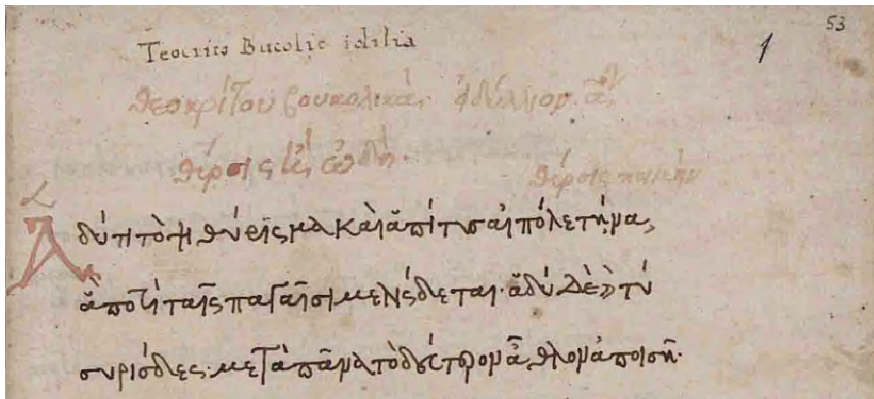 53
1
Teocrito Bucolic idilia
θεοκρίτου βουκολικά· εἰδύλλιον αον
θύρσις ἢ ᾠδή·
θύρσις ποιμήν
Ἁδύ τι τὸ ψιθύρισμα καὶ ἁ πίτυς αἰπόλε τήνα,
ἃ ποτὶ ταῖς παγαῖσι μελίσδεται· ἁδὺ δὲ καὶ τύ
συρίσδες· μετὰ πᾶνα τὸ δεύτερον ἆθλον ἀποισῇ·